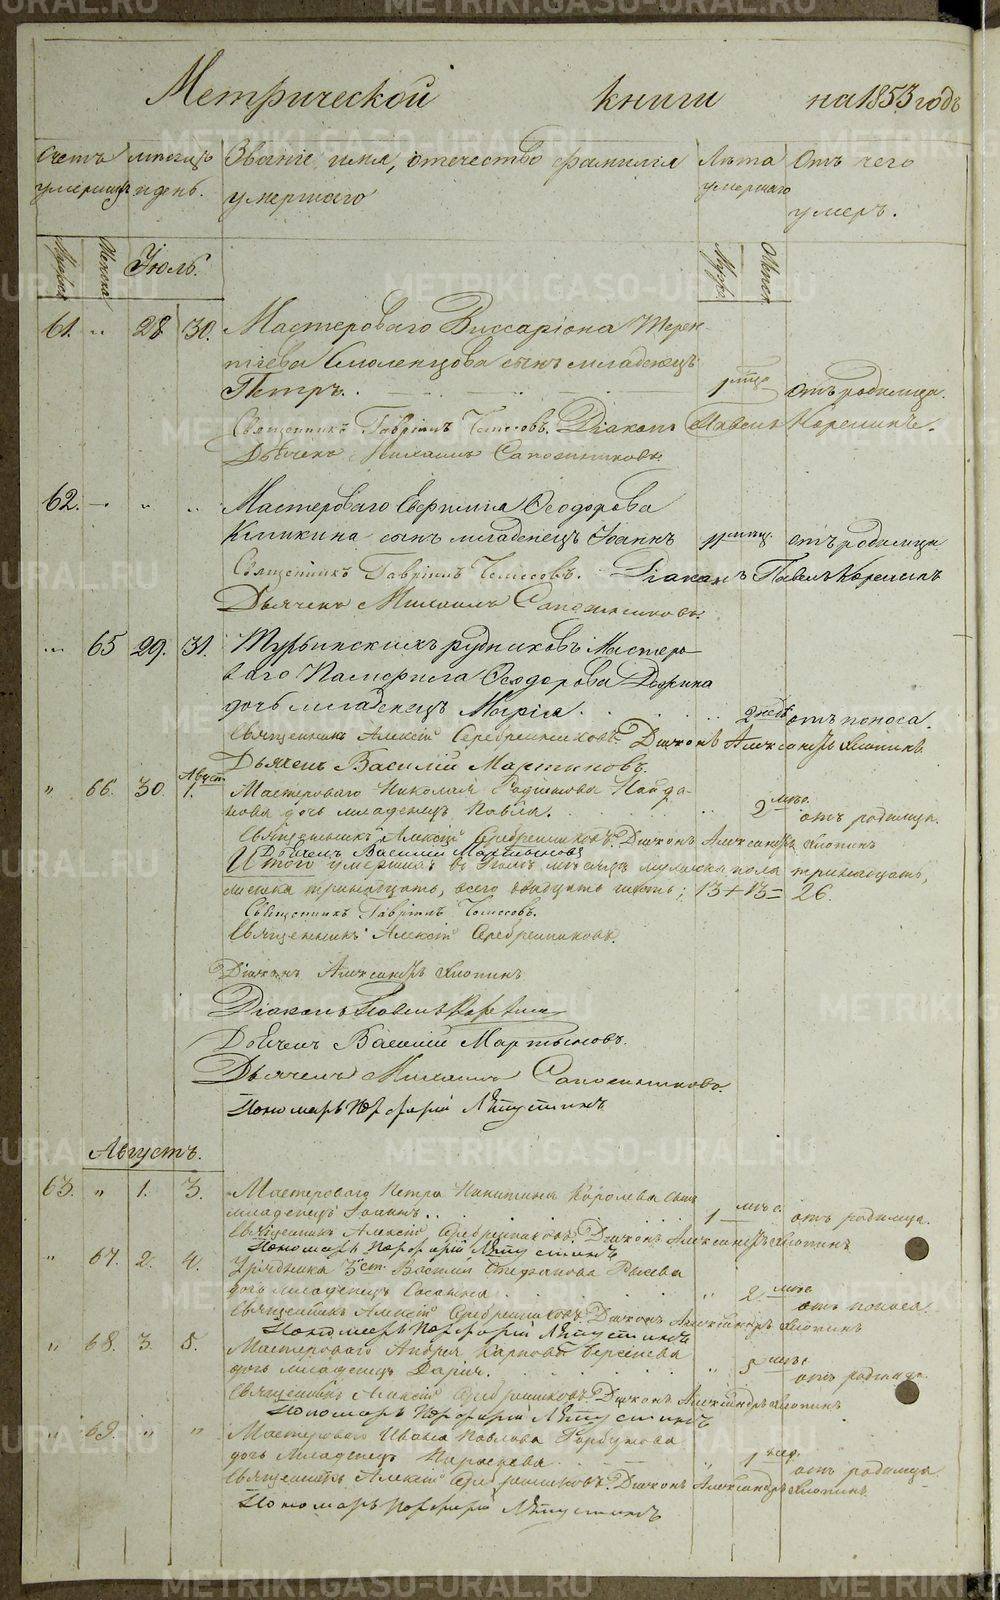 Метрической книги на 1853 годъ
Счетъ умершихъ
Мѣсяцъ и день.
Званіе, имя, отечество фамилія умершаго
Лѣта умершаго
Отъ чего умеръ.
Женска
Іюль.
61. „ 28 30. Мастероваго Виссаріона Терен-
тіева Смоленцова сынъ младенецъ
Петръ. 1 мѣс. отъ родимца.
Священникъ Гавріилъ Діаконъ Павелъ
Дьячекъ Михаилъ Сапожниковъ
62. „ „ Мастероваго Ѳеодорова
сынъ младенецъ Іоаннъ отъ родимца
Священникъ Гавріилъ Діаконъ Павелъ
Дьячекъ Михаилъ Сапожниковъ.
„ 65 29. 31. Турьинскихъ рудниковъ Мастеро-
ваго Памфила Ѳеодорова
дочь младенецъ Марія. 2 нед. отъ поноса.
Священникъ Алексій Серебренниковъ. Діаконъ Александръ Хлопинъ
Дьячекъ Василій Мартыновъ.
Август.
„ 66. 30. 1. Мастероваго Николая Родионова Найда-
нова дочь младенецъ Павла. 2 мѣс. отъ родимца.
Священникъ Алексій Серебренниковъ. Діаконъ Александръ Хлопинъ
Дьячекъ Василій Мартыновъ
Итого умершихъ въ Іюлѣ мѣсяцѣ мужеска пола тринадцать,
женска тринадцать, всего двадцать шесть; 13+13=26.
Священникъ Гавріилъ
Священникъ Алексій Серебренниковъ.
Діаконъ Александръ Хлопинъ
Діаконъ Павелъ
Дьячекъ Василій Мартыновъ.
Дьячекъ Михаилъ Сапожниковъ.
Пономарь Порфирій
Августъ.
63. „ 1. 3. Мастероваго Петра Никитина Королева сынъ
младенецъ Іоаннъ. 1 мѣс. отъ родимца.
Священникъ Алексій Серебренниковъ. Діаконъ Александръ Хлопинъ
Пономарь Порфирій
„ 67. 2. 4. Урядника 3 ст. Василія Стефанова
дочь младенецъ 2 мѣс. отъ поноса.
Священникъ Алексій Серебренниковъ. Діаконъ Александръ Хлопинъ
Пономарь Порфирій
„ 68. 3. 5. Мастероваго Андрея Карпова Берсенева
дочь младенецъ Дарія. мѣс. отъ родимца.
Священникъ Алексій Серебренниковъ. Діаконъ Александръ Хлопинъ
Пономарь Порфирій
„ 69. „ „ Мастероваго Ивана Павлова Горбунова
дочь младенецъ Параскева. 1 нед. отъ родимца.
Священникъ Алексій Серебренниковъ. Діаконъ Александръ Хлопинъ
Пономарь Порфирій
METRIKI.GASO-URAL.RU